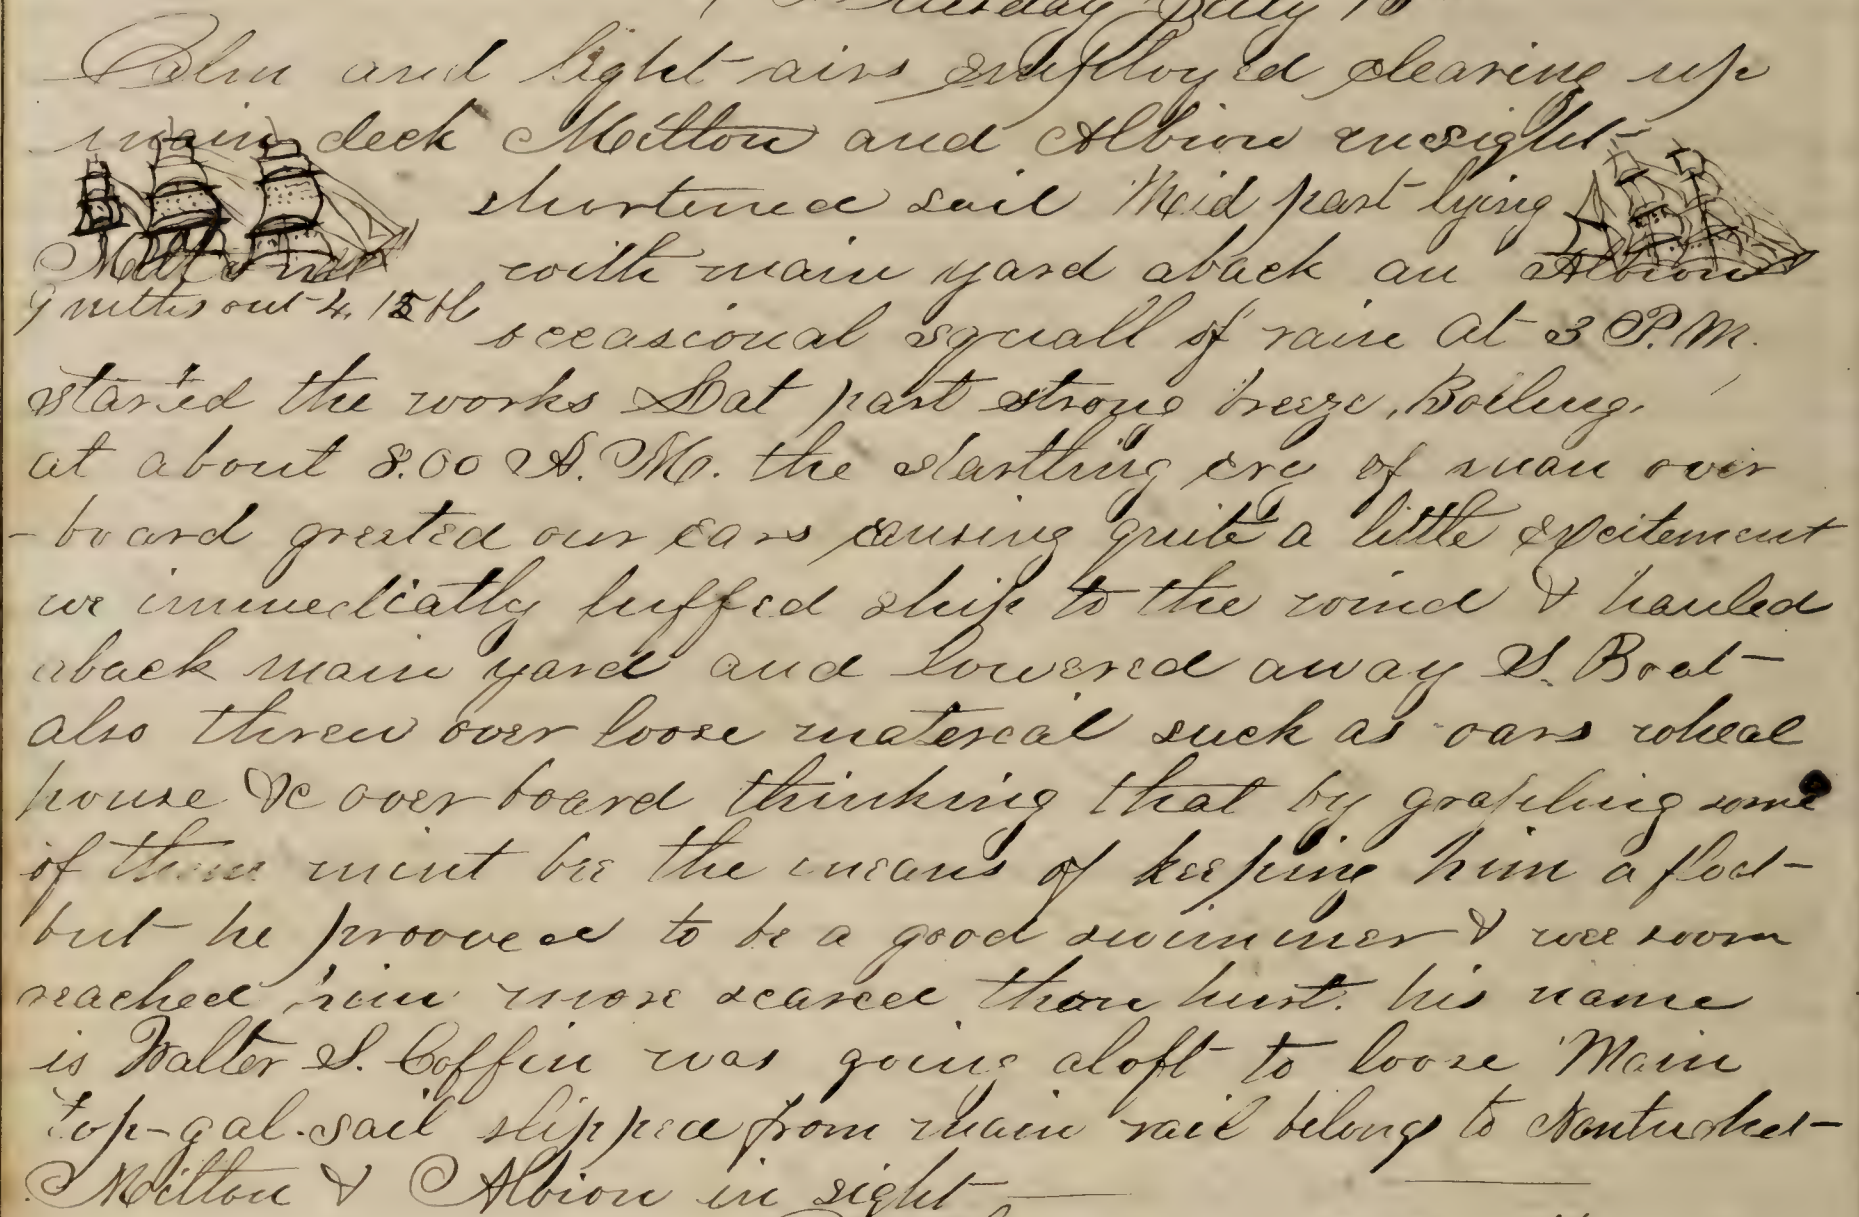 Tuesday July
Calm and light airs employed clearing up
main deck Milton and Albion insight
shortened sail Mid part lying
with main yard aback an
Albion
Milton
9 mths out 4.
occasional squall of rain At 3 P.M.
started the works Lat part strong breeze, Boiling.
at about 8.00 A.M. the startling cry of man over
-board greeted our ears causing quite a little excitement
we immediatly luffed ship to the wind & hauled
aback main yard and lowered away S. Boat
also threw over loose matereal such as oars wheal
house &c over board thinking that by grapling some
of them mint bee the means of keeping him a float
but he prooved to be a good swimmer & wee soon
reached him more scared than hurt. his name
is Walter S. Coffin was going aloft to loose Main
top-gal-sail slipped from main rail belongs to Nantucket
Milton & Albion in sight